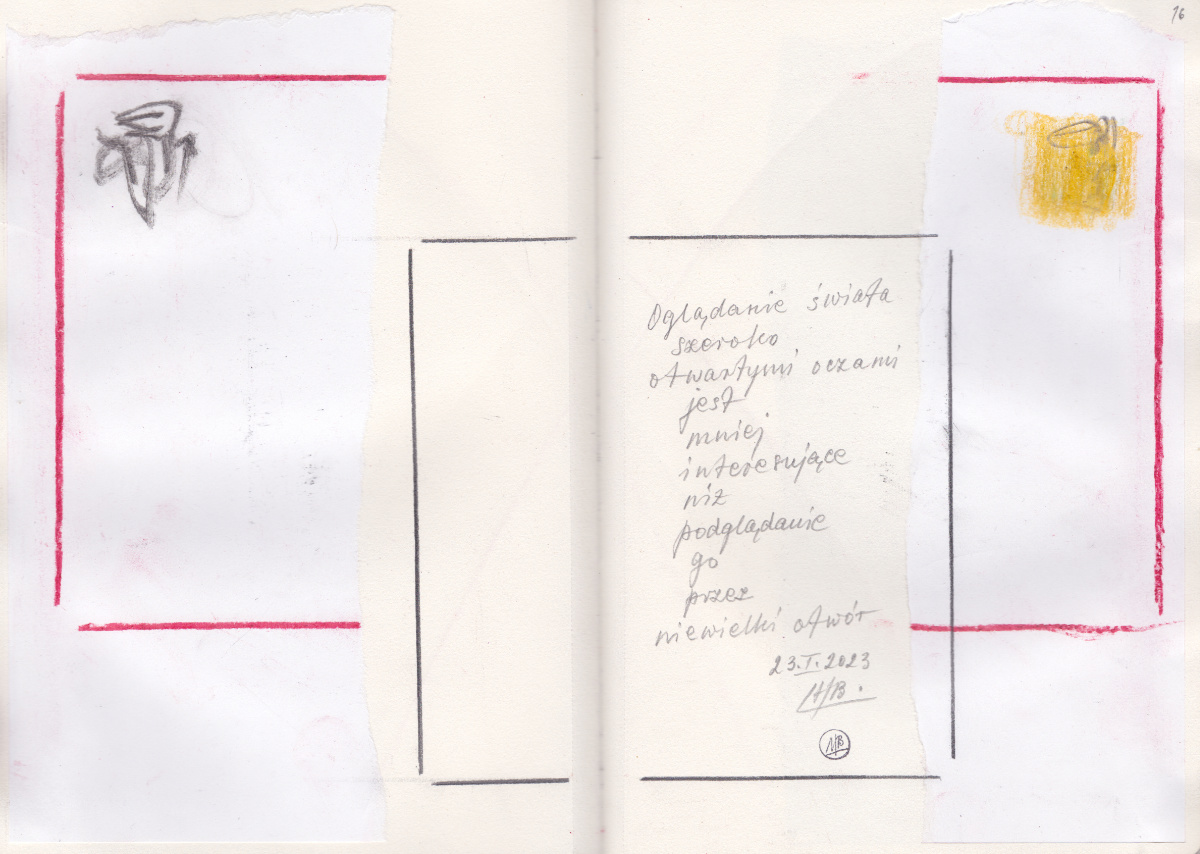 16
Oglądanie świata
szeroko
otwartymi oczami
jest
mniej
interesujące
niż
podglądanie
go
przez
niewielki otwór
23.I.2023